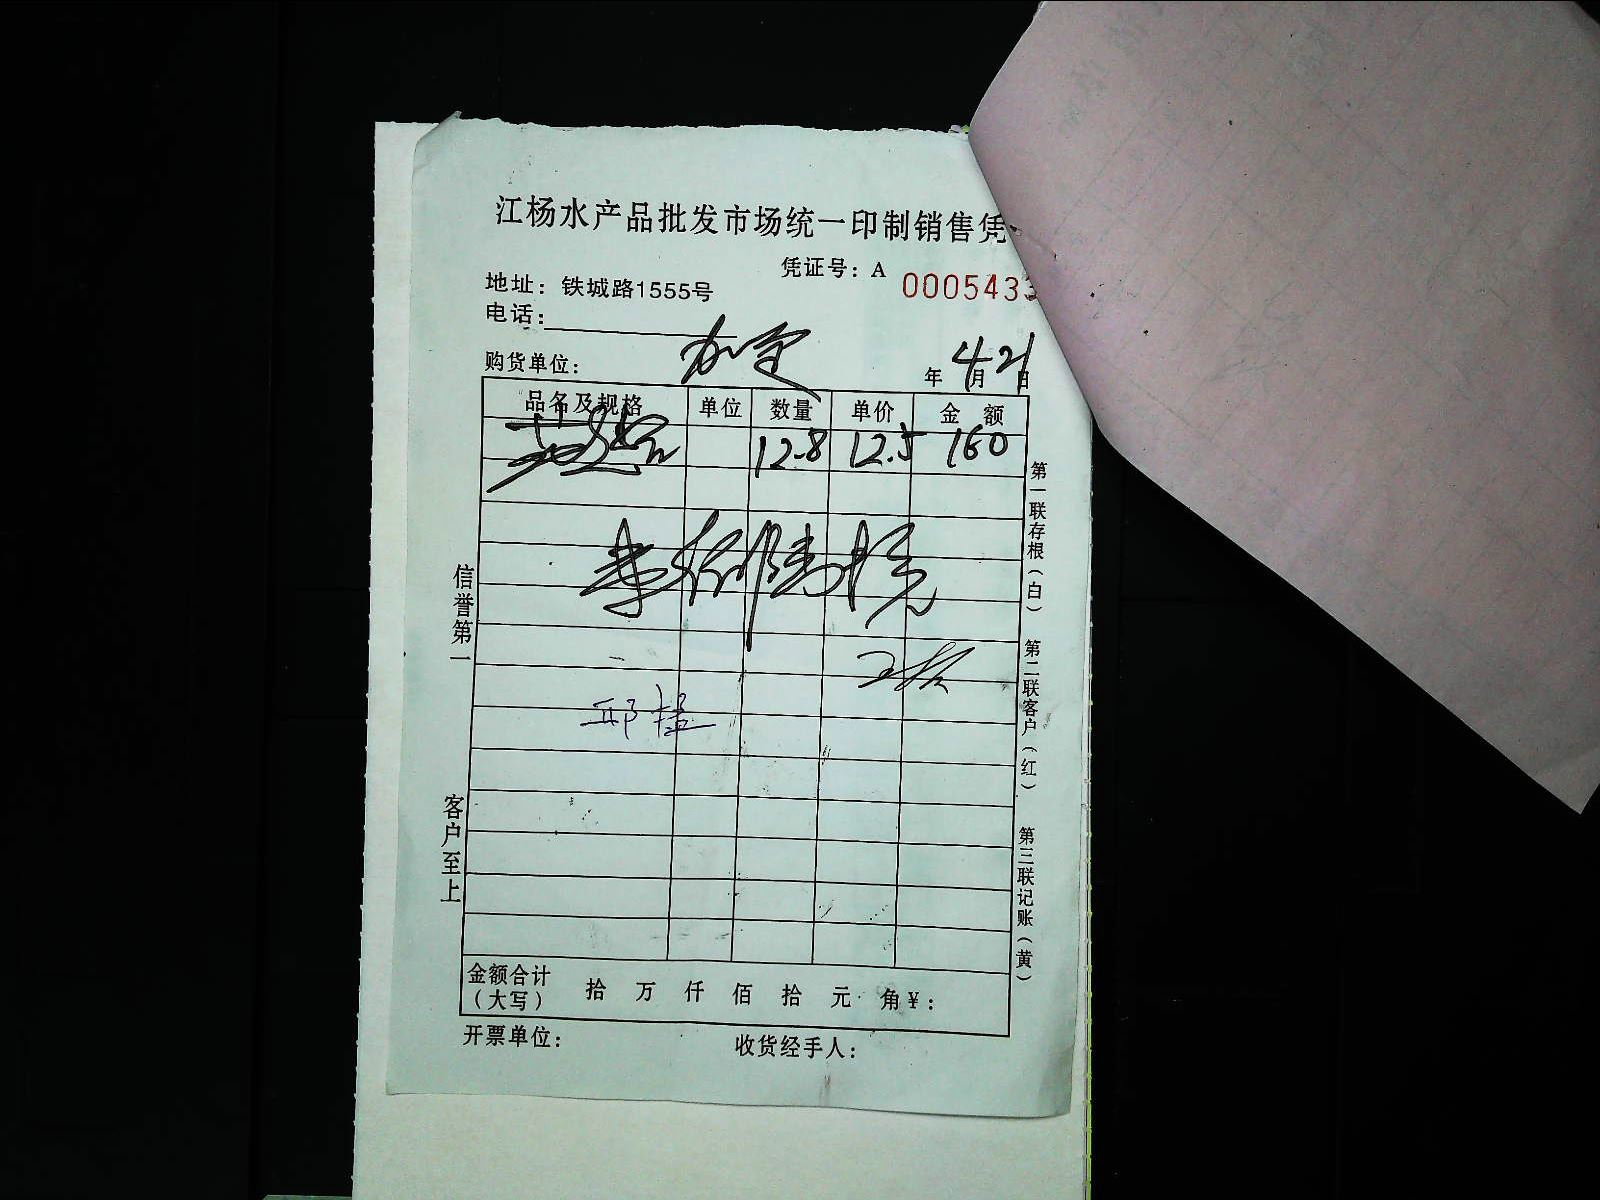 江杨水产品批发市场统一印制销售凭
凭证号：A 000543
地址：铁城路1555号
电话：
购货单位：
年 4月 21日
品名及规格 单位 数量 单价 金 额
12.8 12.5 160
信誉第一
客户至上
第一联存根（白）
第二联客户（红）
第三联记账（黄）
金额合计（大写） 拾 万 仟 佰 拾 元 角 ¥：
开票单位： 收货经手人：